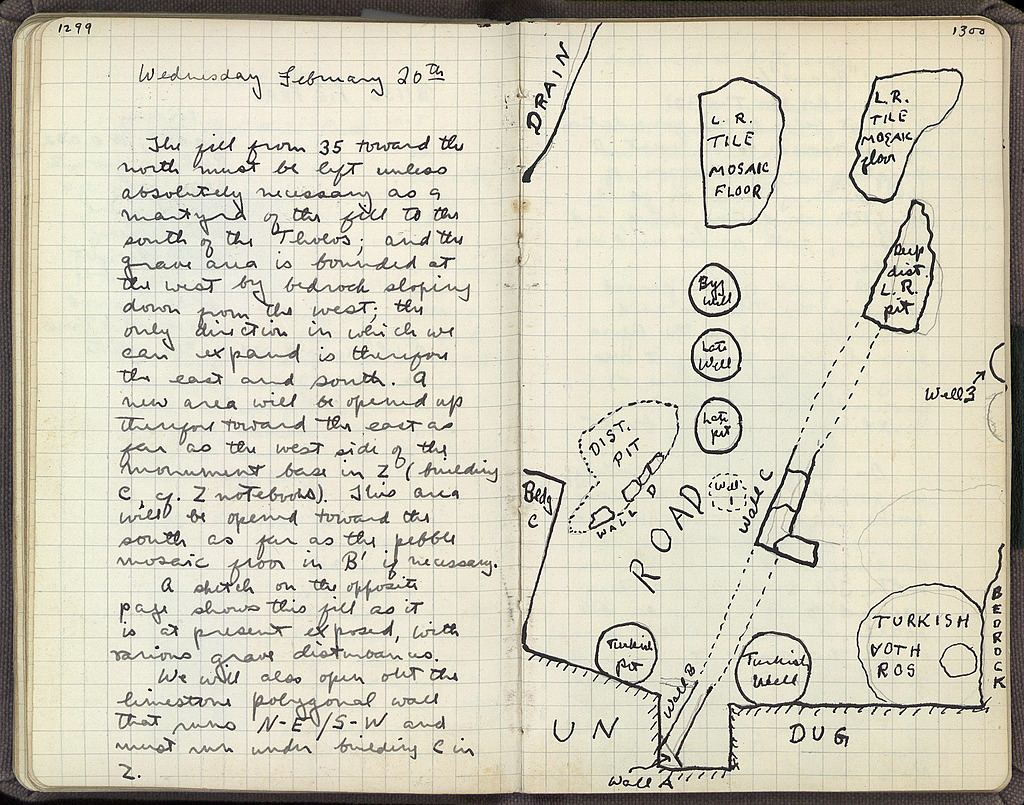 1299
Wednesday February 20th
The fill from 35 toward the
north must be left unless
absolutely necessary as a
martyra of the fill to the
south of the Tholos; and the
grave area is bounded at
the west by bedrock sloping
down from the west; the
only direction in which we
can expand is therefore
the east and south. A
new area will be opened up
therefore toward the east as
far as the west side of the
monument base in Z (building
C, cf. Z notebooks). This area
will be opened toward the
south as far as the pebble
mosaic floor in B' if necessary.
A sketch on the opposite
page shows this fill as it
is at present exposed, with
various grave disturbances.
We will also open out the
limestone polygonal wall
that runs N-E/S-W and
must run under building C in
Z.
1300
DRAIN
L. R.
TILE
MOSAIC
FLOOR
L. R.
TILE
MOSAIC
floor
Deep
dist.
L. R.
pit
Byz
Well
Late
Well
Well 3
Late
pit
DIST.
PIT
WALL D
Bldg
C
ROAD
Well
1
Wall C
BEDROCK
TURKISH
VOTH
ROS
Turkish
pit
Turkish
Well
Wall B
UN
DUG
Wall A